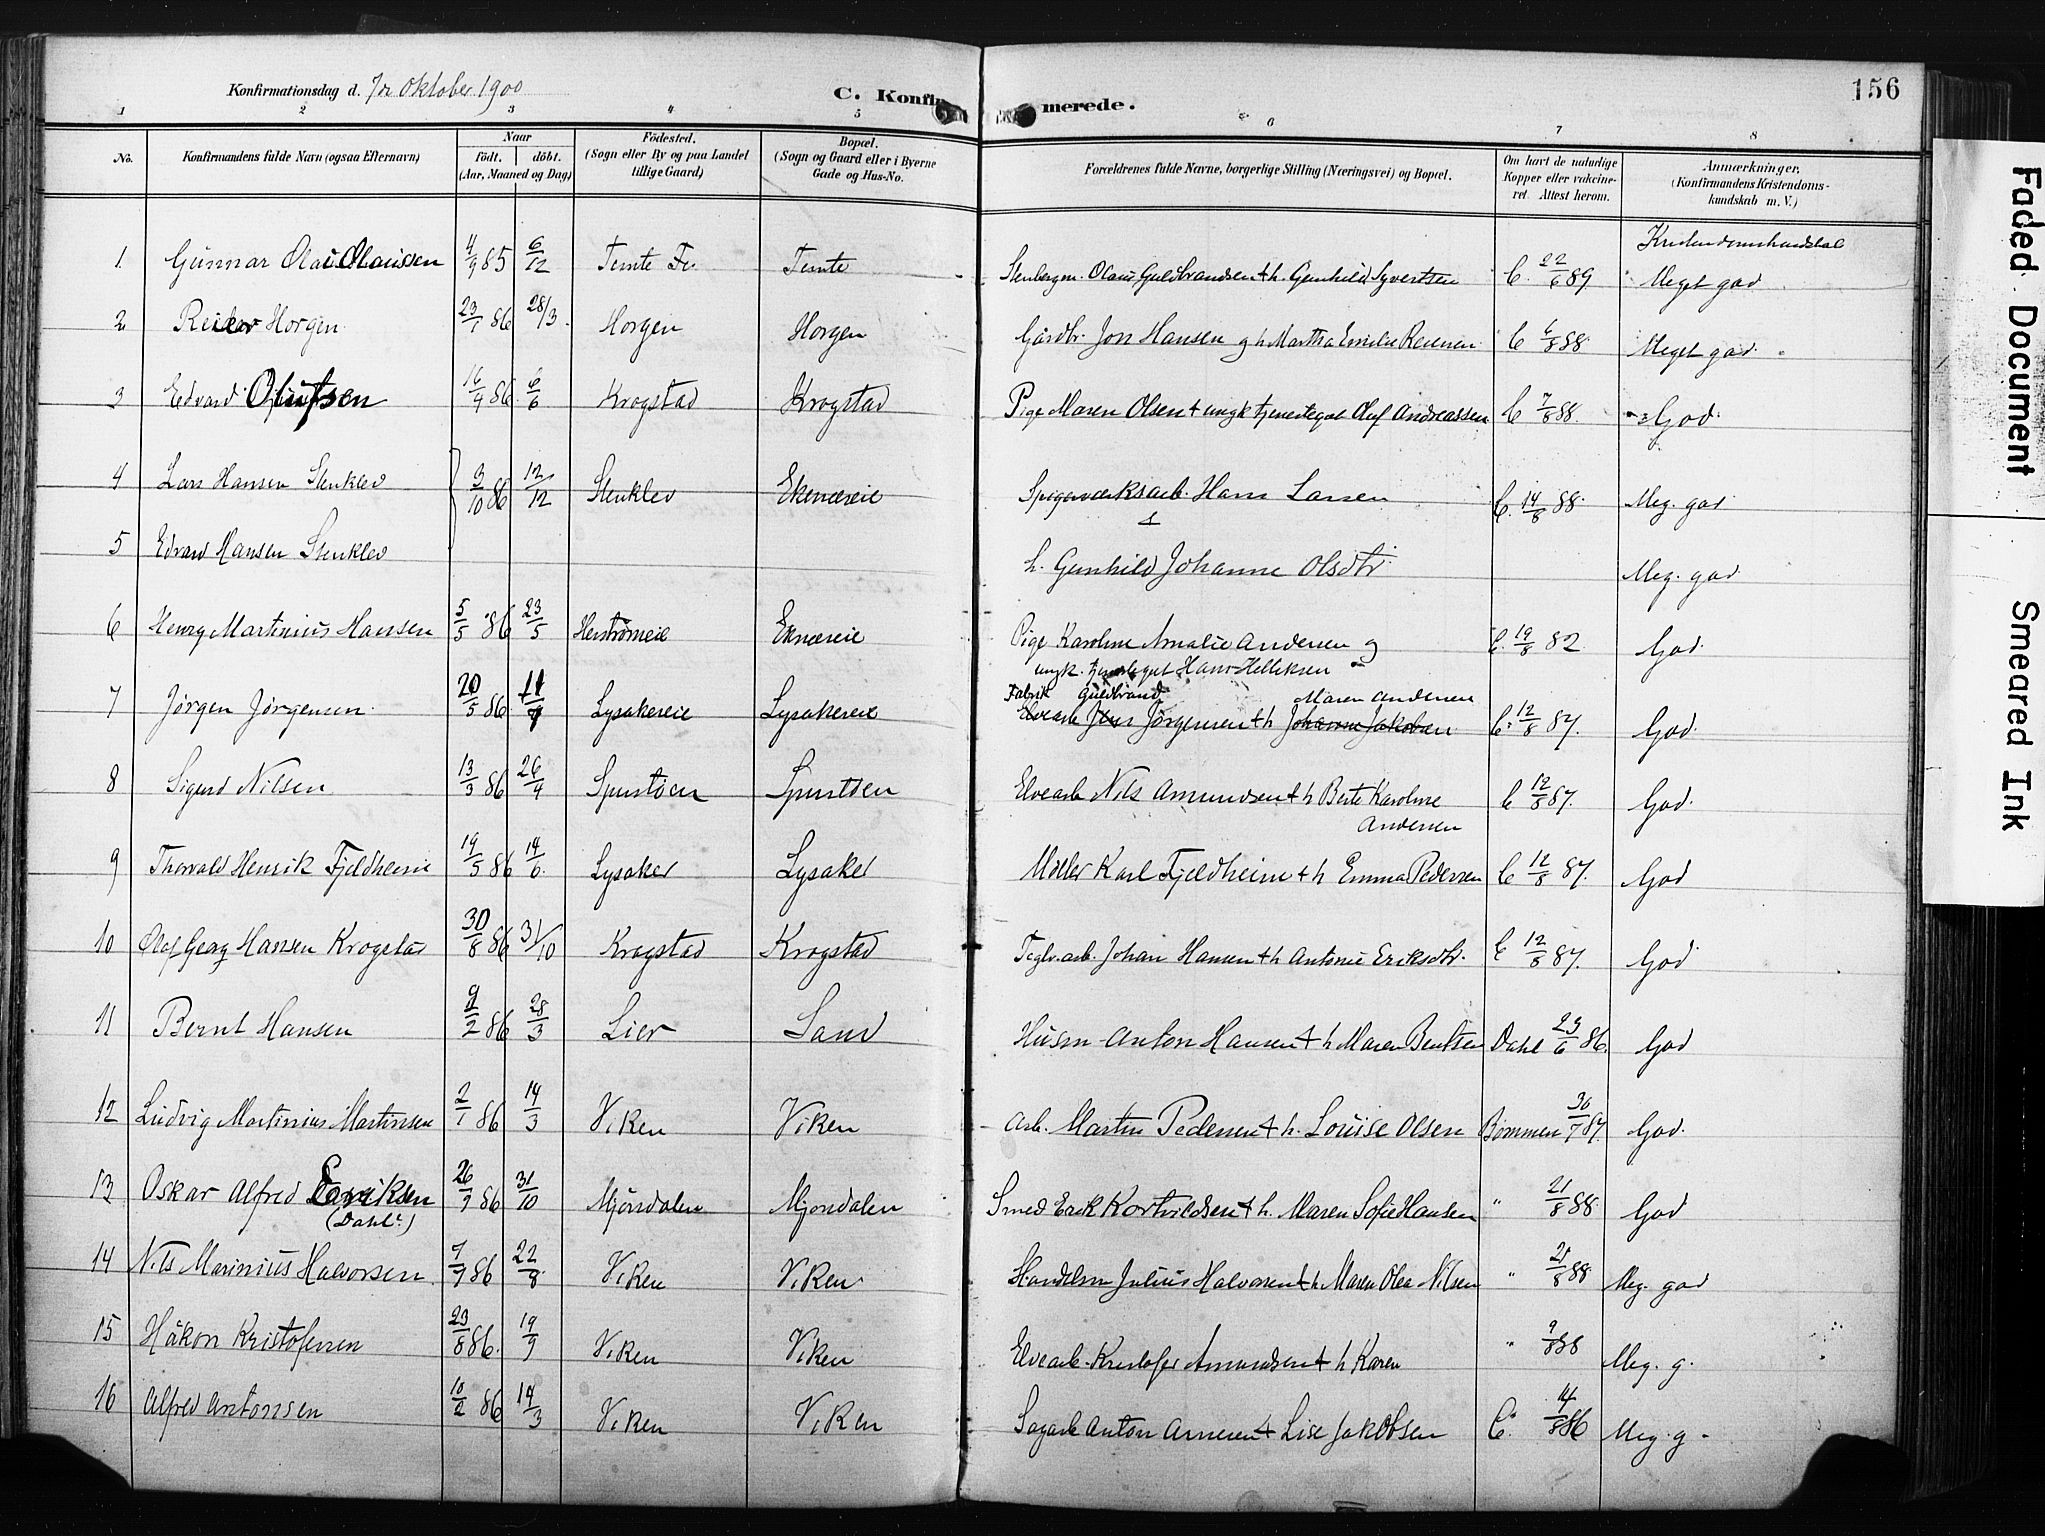 Konfirmationsdag d. 7de Oktober 1900
C. Konfir merede.
156
1 2 3 4 5 6 7 8
No.
Konfirmandens fulde Navn (ogsaa Efternavn)
Naar
født. døbt.
(Aar, Maaned og Dag)
Fødested.
(Sogn eller By og paa Landet
tillige Gaard)
Bopæl.
(Sogn og Gaard eller i Byerne
Gade og Hus-No.
Forældrenes fulde Navne, borgerlige Stilling (Næringsvei) og Bopæl.
Om havt de naturlige
Kopper eller vakcine-
ret. Attest herom.
Anmærkninger.
(Konfirmandens Kristendoms-
kundskab m. V.)
Kristendomskundskab
1 Gunnar Olai Olaussen 4/9 85 6/12 Temte Temte Stenbergm. Olaus Guldbrandsen + h. Gunhild Syvertsen C. 22/6 89 Meget god
2 Reidar Horgen 23/1 86 28/3 Horgen Horgen Gårdbr. Jon Hansen og h Martha Emelie C 6/8 88 Meget god
3 Edvard Olufsen 16/4 86 6/6 Krogstad Krogstad Pige Maren Olsen + ungk tjenestegut Oluf Andreassen C 7/8 88 God
4 Lars Hansen Stenklev 3/10 86 12/12 Stenklev Ekenæseie Spigerværksarb. Hans Larsen C. 14/8 88 Meg. god
+
5 Edvard Hansen Stenklev h. Gunhild Johanne Olsdtr. Meg. god
6 Henry Martinius Hansen 5/5 86 23/5 Herstrømeie Eknæseie Pige Karoline Amalie Andersen og C. 19/8 82 God
ungk. tjenestegut Hans Helliksen
7 Jørgen Jørgensen 20/5 86 Lysakereie Lysakereie Elvearb Jens Jørgensen + h Johanne Jakobsen C. 12/8 87. God
Fabrik Guldbrand Maren Andersen
8 Sigurd Nilsen 13/3 86 26/4 Spentøen Elvearb Nils Amundsen + h Berte Karoline C 12/8 87. God.
Andersen
9 Thorvald Henrik Fjeldheim 19/5 86 14/6 Lysaker Lysaker Møller Karl Fjeldheim + h Emma Pedersen C 12/8 87. God
10 Olaf Georg Hansen Krogstad 30/8 86 31/10 Krogstad Krogstad Teglv.arb. Johan Hansen + h Antonie Eriksdtr. C 12/8 87. God
11 Bernt Hansen 2 86 28/3 Lier Sand Husm Anton Hansen + h Maren Bentsen Dahl 23/6 86. God
12 Ludvig Martinius Martinsen 2/1 86 14/3 Viken Viken Arb. Martin Pedersen + h. Louise Olsen Bommen 30/7 87. God.
13 Oskar Alfred Eriksen 26/9 86 31/10 Mjøndalen Mjøndalen Smed Erik + h. Maren Sofie Hansen " 21/8 88. God
(Dahl)
14 Nils Marinius Halvorsen 7/7 86 22/8 Viken Viken Handelsm Julius Halvorsen + h Maren Olea Nilsen " 21/8 88 Meg. god
15 Håkon Kristofersen 23/8 86. 19/9 Viken Viken Elvearb. Kristofer Amundsen + h Karen " 9/8 88 Meg. g.
16 Alfred Antonsen 10/2 86 14/3 Viken Viken Sagarb Anton Arnesen + Lise Jakobsen C. 14/8 86 Meg. g.
Faded Document
Smeared Ink